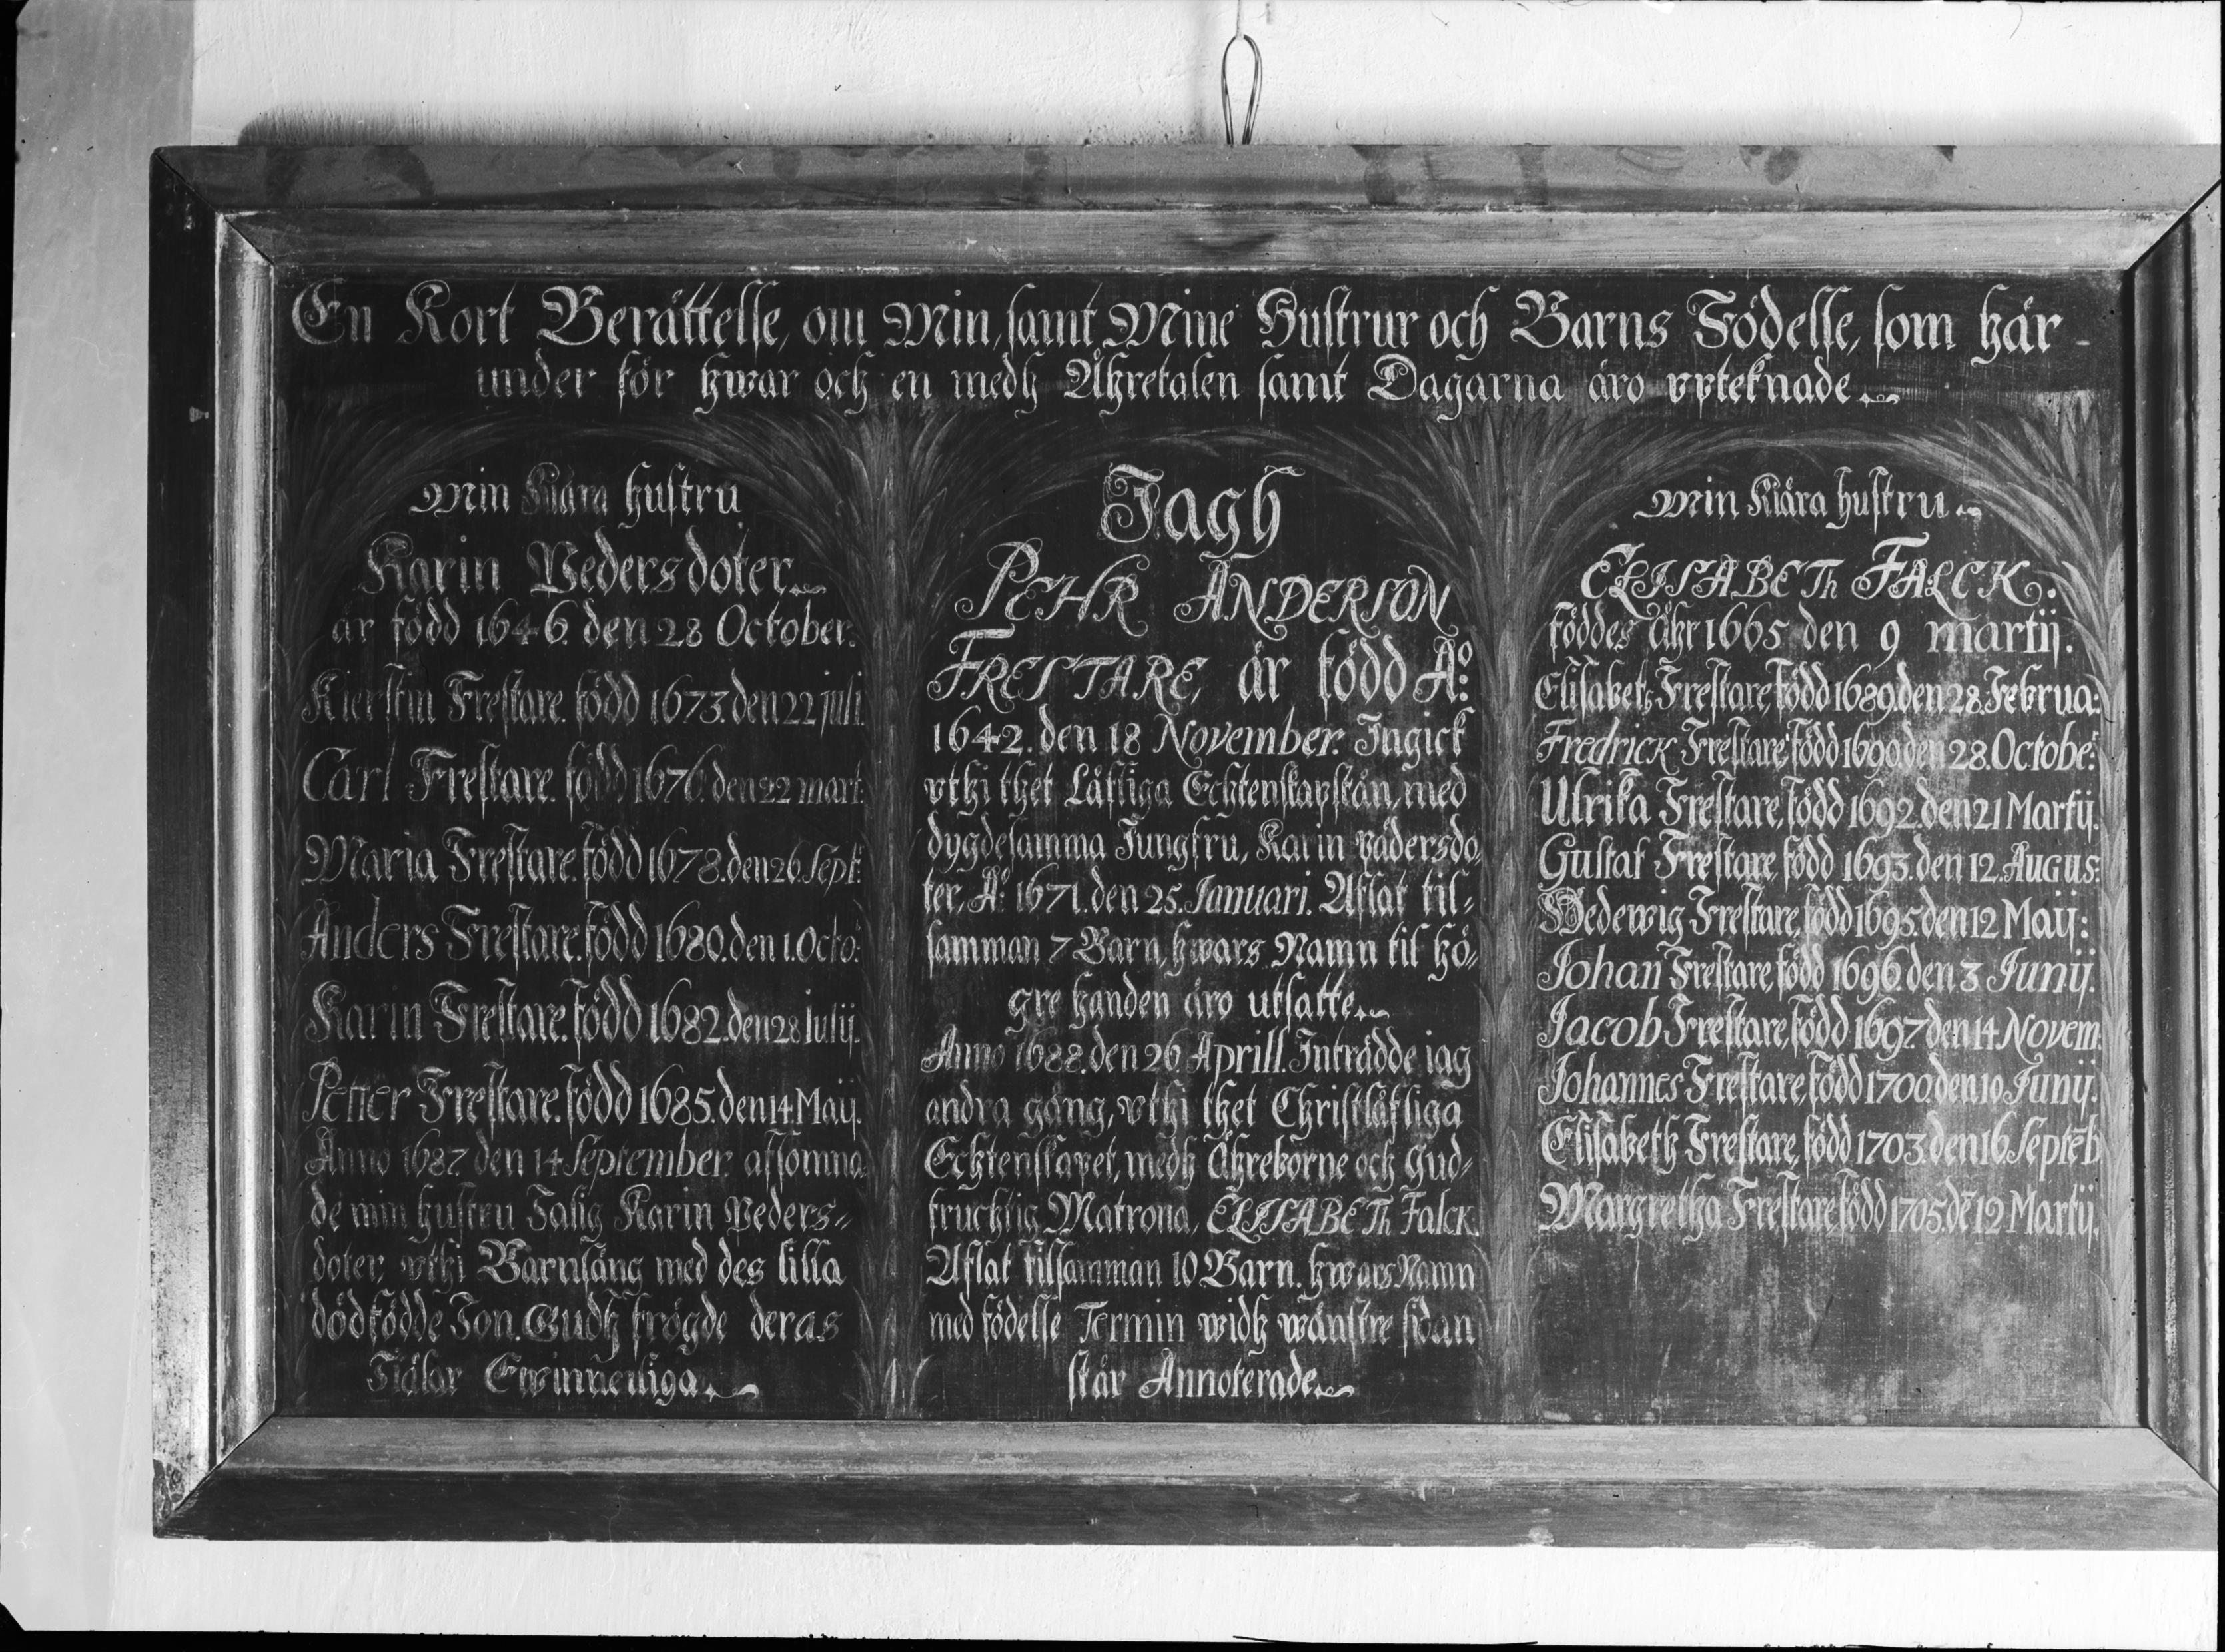 En Kort Berättelse, om Min, samt Mine Hustrur och Barns Födelse, som här
under för hwar och en medh Åhretalen samt Dagarna äro vpteknade
Min Kiära hustru
Karin Pedersdoter
är född 1646. den 28 October.
Kierstin Frestare. född 1673. den 22 juli
Carl Frestare. född 1676. den 22 mart:
Maria Frestare. född 1678. den 26. Sept:
Anders Frestare. född 1680. den 1. Octo:
Karin Frestare. född 1682. den 28 Iulij.
Petter Frestare. född 1685. den 14 Maij.
Anno 1687 den 14 September. afsomna
de min hustru Salig Karin Peders-
doter, vthi Barnsäng med des lilla
dödfödde Son. Gudh frögde deras
Siälar Ewinnerliga.
Jagh
PEHR ANDERSON
FRESTARE, är född Aº:
1642. den 18 November. Ingick
vthi thet Låfliga Echtenskapstån, med
dygdesamma Jungfru, Karin pädersdo-
ter, Aº: 1671. den 25. Januari. Aflat til-
samman 7 Barn, hwars Namn til hö-
gre handen äro utsatte.
Anno 1688. den 26 Aprill. Inträdde iag
andra gång, vthi thet Christlåfliga
Echtenskapet, medh Åhreborne och Gud-
fruchtig Matrona, ELISABETh Falck.
Aflat tilsamman 10 Barn. hwars Namn
med födelse Termin widh wänstre sidan
står Annoterade
Min Kiära hustru
ELISABETh FALCK.
föddes Åhr 1665 den 9 martij.
Elisabeth Frestare, född 1689. den 28. Februa:
Fredrick Frestare, född 1690. den 28. October:
Ulrika Frestare, född 1692. den 21 Martij.
Gustaf Frestare, född 1693. den 12. Augus:
Hedewig Frestare, född 1695. den 12 Maij:
Johan Frestare, född 1696. den 3 Junij.
Jacob Frestare, född 1697. den 14 Novem:
Johannes Frestare, född 1700. den 10. Junij.
Elisabeth Frestare, född 1703. den 16. Septēb
Margretha Frestare, född 1705. dē 12 Martij.